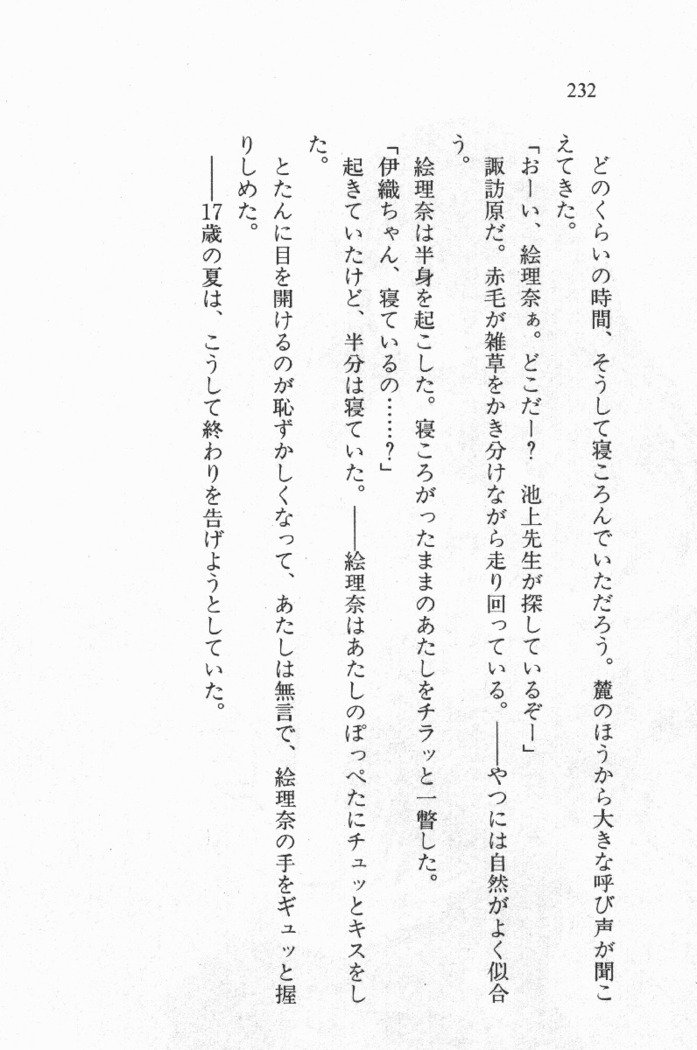 232
どのくらいの時間、そうして寝ころんでいただろう。麓のほうから大きな呼び声が聞こ
えてきた。
「おーい、絵理奈ぁ。どこだー？　池上先生が探しているぞー」
諏訪原だ。赤毛が雑草をかき分けながら走り回っている。――やつには自然がよく似合
う。
絵理奈は半身を起こした。寝ころがったままのあたしをチラッと一瞥した。
「伊織ちゃん、寝ているの……？」
起きていたけど、半分は寝ていた。――絵理奈はあたしのぽっぺたにチュッとキスをし
た。
とたんに目を開けるのが恥ずかしくなって、あたしは無言で、絵理奈の手をギュッと握
りしめた。
――17歳の夏は、こうして終わりを告げようとしていた。